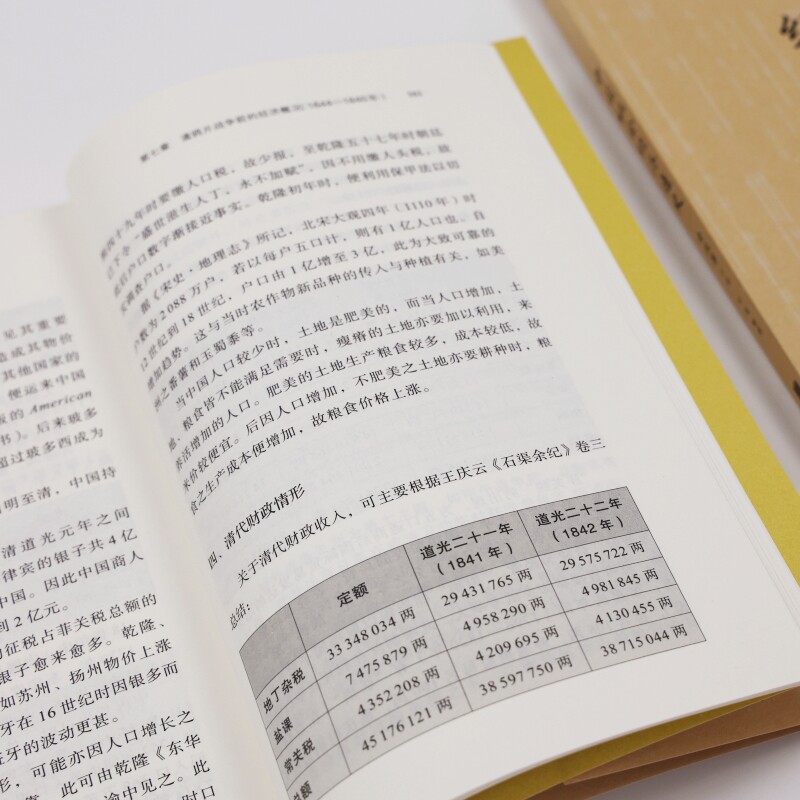 见其重要
造成其物价
其他国家的
便运来中国
版的 American
书)。后来玻多
超过玻多西成为
明至清,中国持
清道光元年之间
律宾的银子共4亿
中国。因此中国商人
到2亿元。
的征税占菲关税总额的
银子愈来愈多。乾隆、
如苏州、扬州物价上涨
牙在16世纪时因银多而
班牙的波动更甚。
形,可能亦因人口增长之
此可由乾隆《东华
谕中见之。此
时口
第七章 清鸦片战争前的经济概况(1644—1840年)
第四十九年时要缴人口税,故少报,至乾隆五十七年时朝廷
已下令“盛世滋生人丁,永不加赋”,因不用缴人头税,故
此后户口数字渐接近事实。乾隆初年时,便利用保甲法以切
实调查户口。
据《宋史·地理志》所记,北宋大观四年(1110年)时
户数为2088万户,若以每户五口计,则有1亿人口也。自
12世纪到18世纪,户口由1亿增至3亿,此为大致可靠的
增加趋势。这与当时农作物新品种的传入与种植有关,如美
洲之番薯和玉蜀黍等。
当中国人口较少时,土地是肥美的,而当人口增加,土
地、粮食皆不能满足需要时,瘦瘠的土地亦要加以利用,来
养活增加的人口。肥美的土地生产粮食较多,成本较低,故
米价较便宜。后因人口增加,不肥美之土地亦要耕种时,粮
食之生产成本便增加,故粮食价格上涨。
四、清代财政情形
关于清代财政收入,可主要根据王庆云《石渠余纪》卷三
总结:
定额 道光二十一年(1841年) 道光二十二年(1842年)
地丁杂税 33348034两 29431765两 29575722两
盐课 7475879两 4958290两 4981845两
常关税 4352208两 4209695两 4130455两
总额 45176121两 38597750两 38715044两